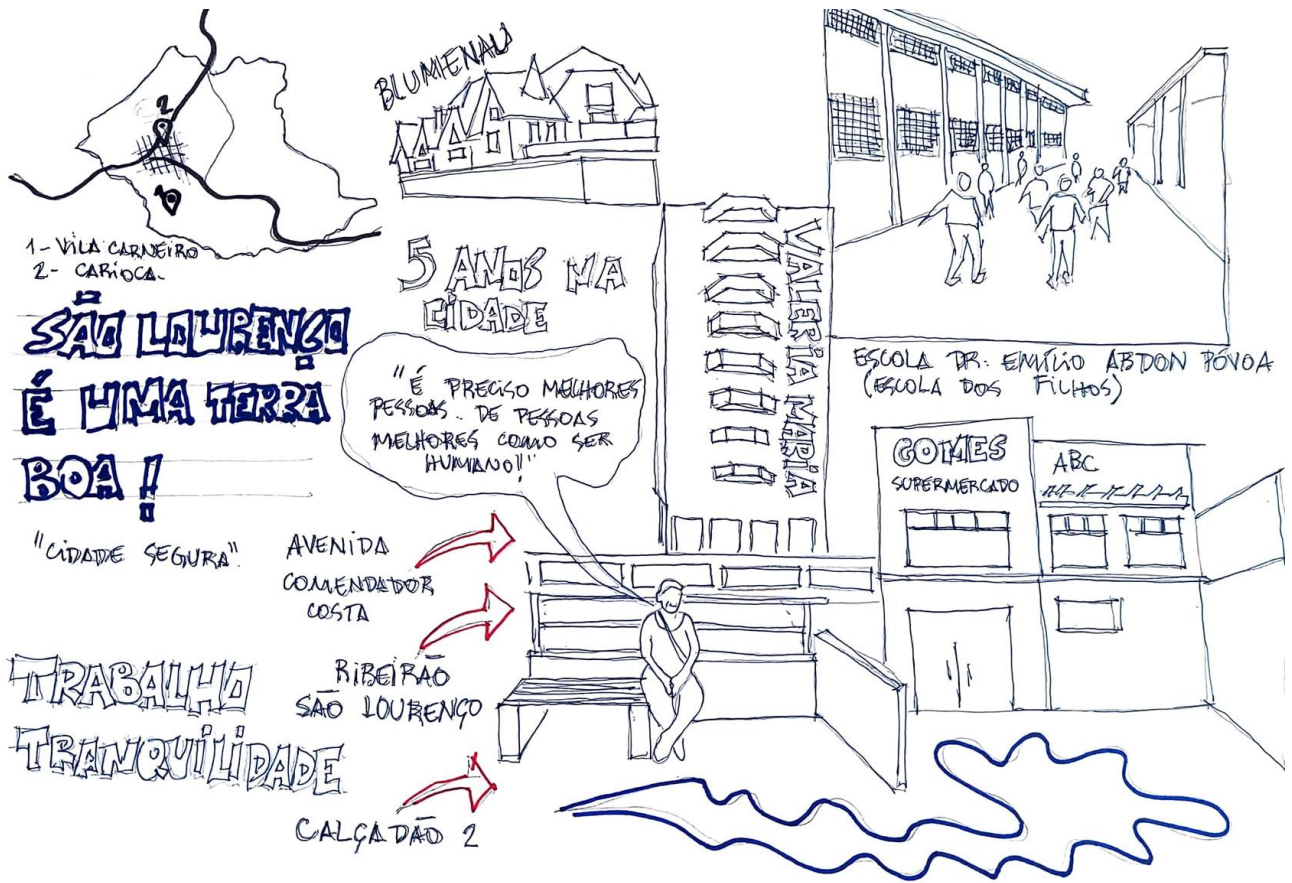 2
1
1- VILA CARNEIRO
2- CARIOCA.
SÃO LOURENÇO
É UMA TERRA
BOA!
"CIDADE SEGURA".
TRABALHO
TRANQUILIDADE
BLUMENAU
5 ANOS NA
CIDADE
"É PRECISO MELHORES
PESSOAS. DE PESSOAS
MELHORES COMO SER
HUMANO!"
AVENIDA
COMENDADOR
COSTA
RIBEIRÃO
SÃO LOURENÇO
CALÇADÃO 2
VALERIA MARIA
ESCOLA DR. EMÍLIO ABDON PÓVOA
(ESCOLA DOS FILHOS)
GOMES
SUPERMERCADO
ABC